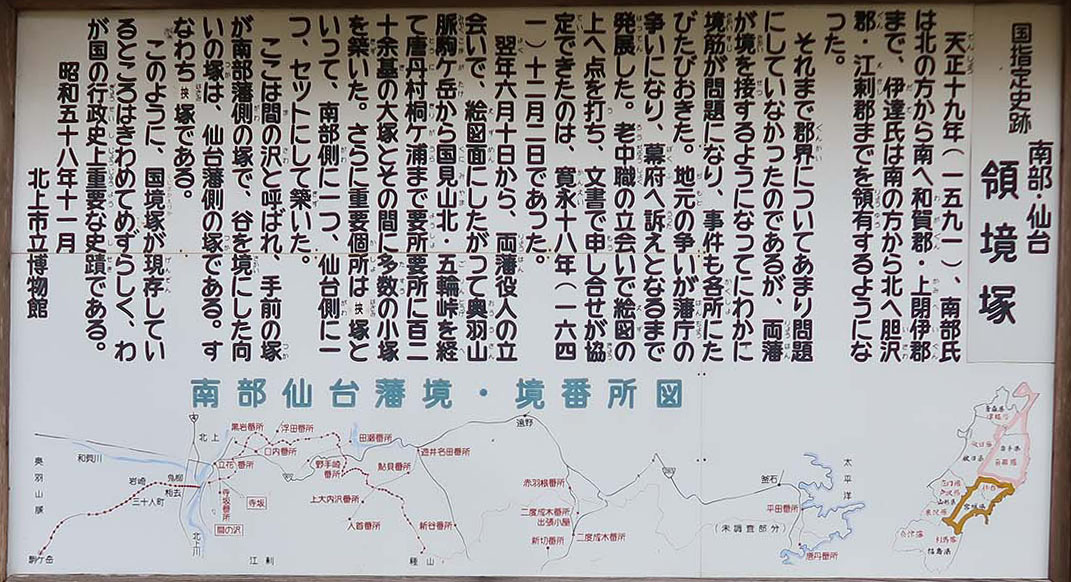 国指定史跡
南部・仙台
領境塚
天正十九年(一五九一)、南部氏
は北の方から南へ和賀郡・上閉伊郡
まで、伊達氏は南の方から北へ胆沢
郡・江刺郡までを領有するようにな
った。
それまで郡界についてあまり問題
にしていなかったのであるが、両藩
が境を接するようになってにわかに
境筋が問題になり、事件も各所にた
びたびおきた。地元の争いが藩庁の
争いになり、幕府へ訴えとなるまで
発展した。老中職の立会いで絵図の
上へ点を打ち、文書で申し合せが協
定できたのは、寛永十八年(一六四
一)十二月二日であった。
翌年六月十日から、両藩役人の立
会いで、絵図面にしたがって奥羽山
脈駒ケ岳から国見山北・五輪峠を経
て唐丹村桐ケ浦まで要所要所に百二
十余基の大塚とその間に多数の小塚
を築いた。さらに重要個所は挟塚と
いって、南部側に一つ、仙台側に一
つ、セットにして築いた。
ここは間の沢と呼ばれ、手前の塚
が南部藩側の塚で、谷を境にした向
いの塚は、仙台藩側の塚である。す
なわち挟塚である。
このように、国境塚が現存してい
るところはきわめてめずらしく、わ
が国の行政史上重要な史蹟である。
昭和五十八年十一月
北上市立博物館
南部仙台藩境・境番所図
奥羽山脈
駒ケ岳
和賀川
岩崎
三十人町
鬼柳
相去
北上
北上川
黒岩番所
浮田番所
口内番所
立花番所
寺坂番所
寺坂
間の沢
江刺
田瀬番所
野手崎番所
上大内沢番所
人首番所
鮎貝番所
遊井名田番所
新谷番所
種山
遠野
赤羽根番所
二度成木番所
出張小屋
新切番所
二度成木番所
釜石
平田番所
(未調査部分)
唐丹番所
太平洋
青森県
秋田県
岩手県
山形県
宮城県
福島県